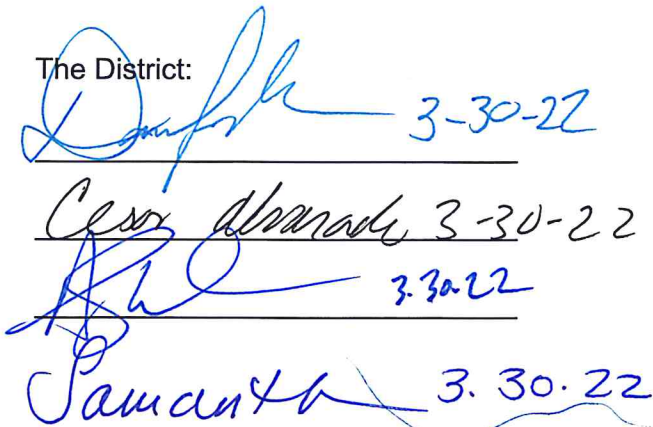 The District:
3-30-22
Cesar Alvarado 3-30-22
3.30.22
Samantha 3.30.22